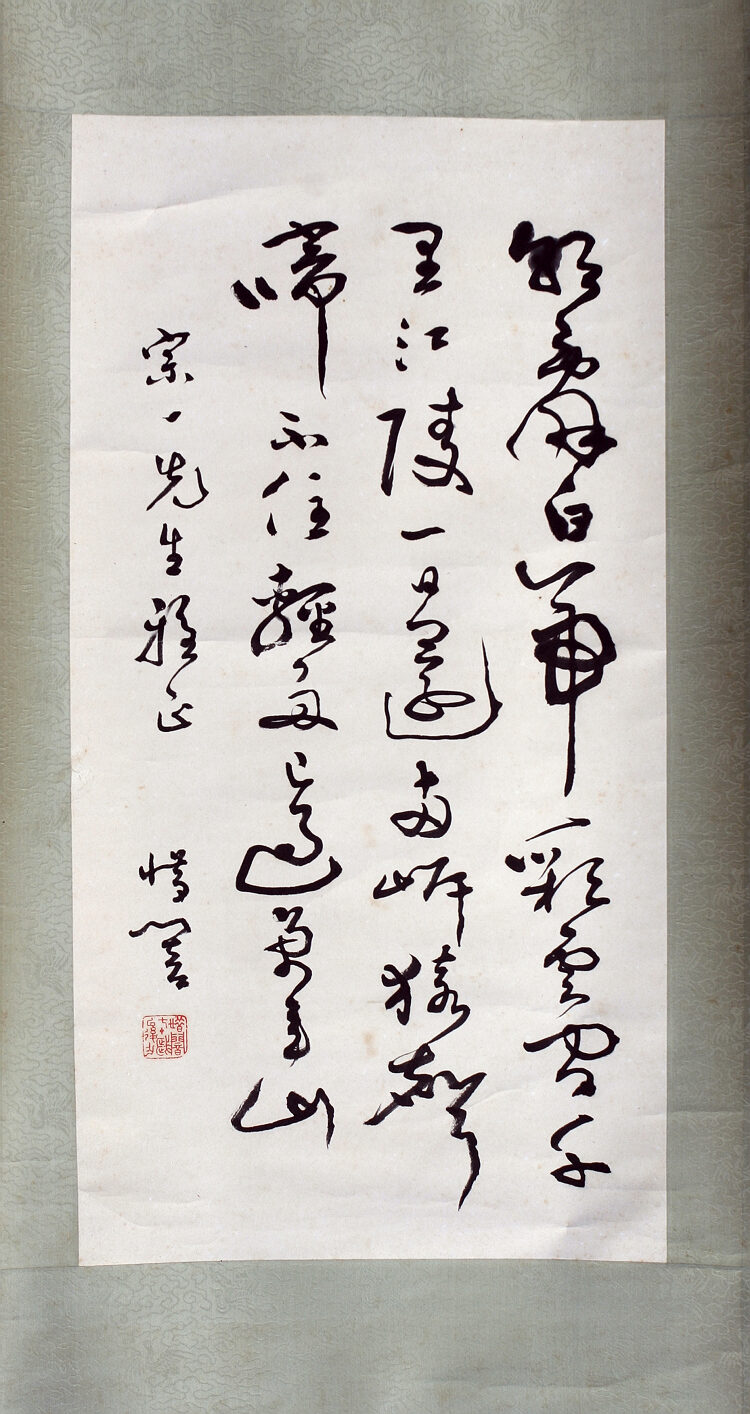 朝辭白帝彩雲間千
里江陵一日還兩岸猿聲
啼不住輕舟已過萬重山
宗一先生雅正